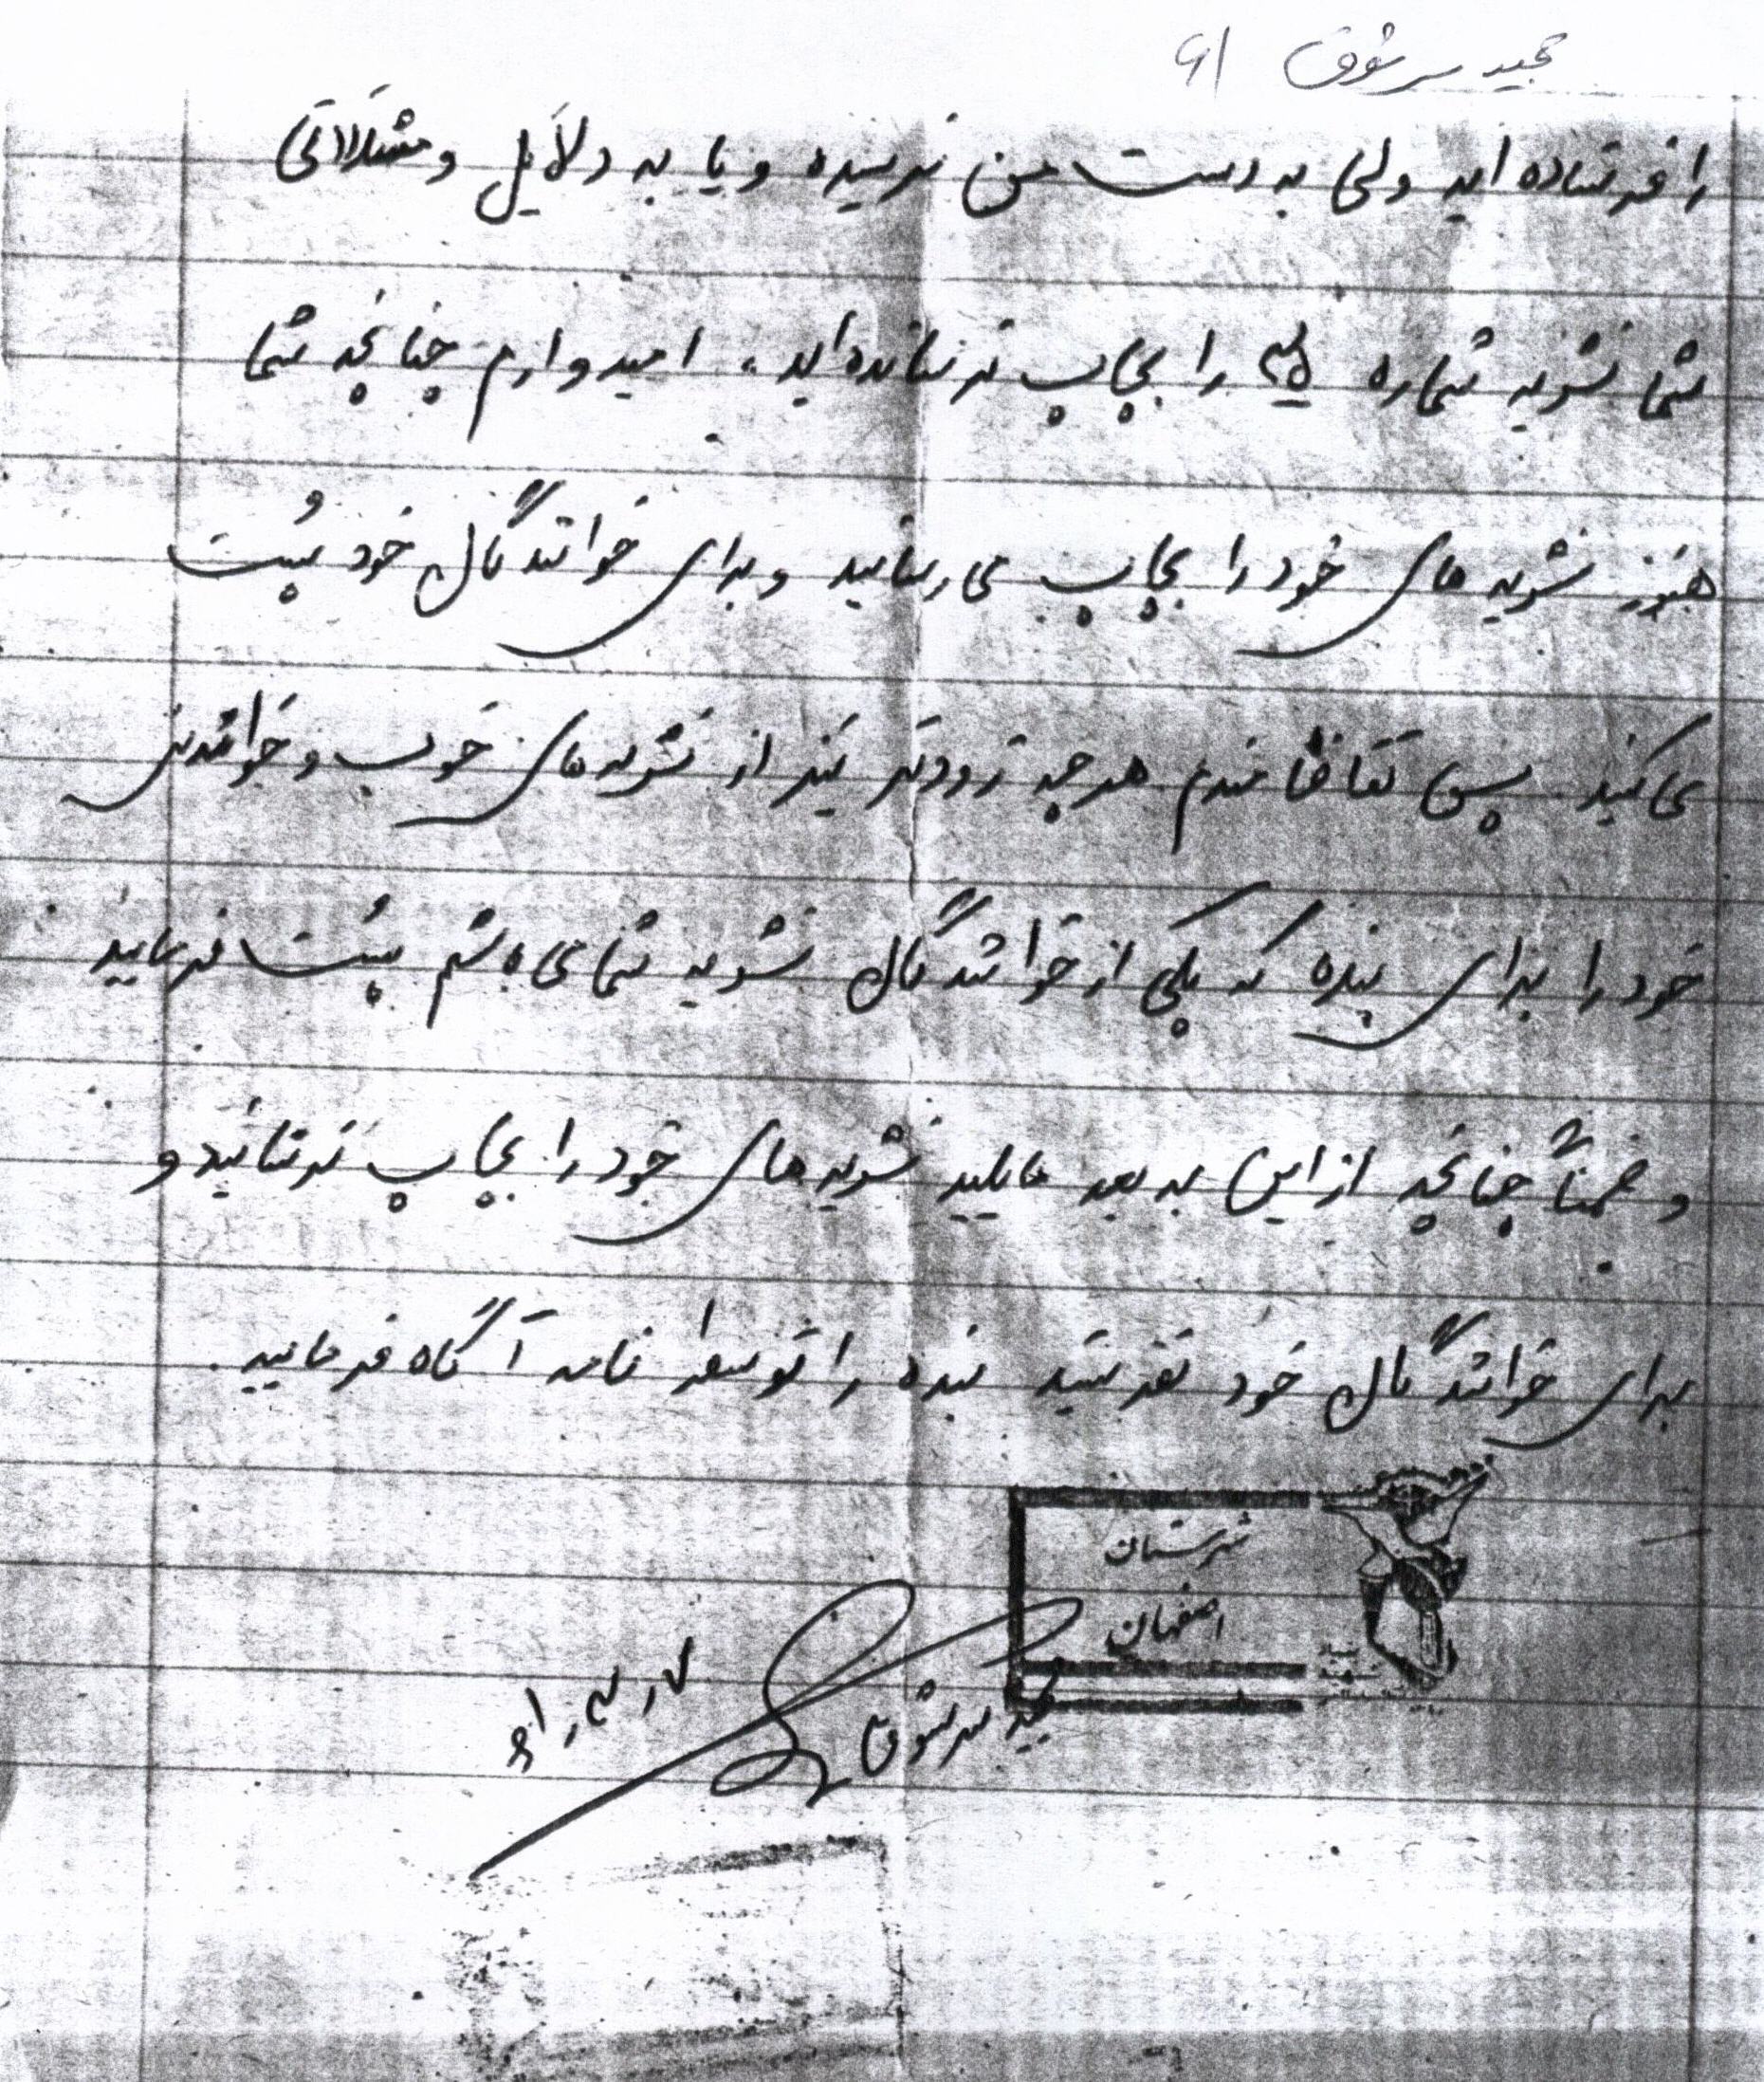 مجید سرشوق ۶۱
را فرستاده اید ولی به دست من نرسیده و یا به دلایل و مشکلاتی
شما نشریه شماره ۳۵ را بچاپ نرسانده‌اید، امیدوارم چنانچه شما
هنوز نشریه های خود را بچاپ می رسانید و برای خوانندگان خود پُست
می کنید پس تقاضا مندم هر چه زودتر نیز از نشریه های خوب و خواندنی
خود را برای بنده که یکی از خوانندگان نشریه شما می باشم پُست فرمایید
و ضمناً چنانچه از این به بعد مایلید نشریه های خود را بچاپ نرسانید و
برای خوانندگان خود نفرستید بنده را توسط نامه آگاه فرمایید.
شهرستان
اصفهان
بنیاد
شهید
مجید سرشوق
۶۱